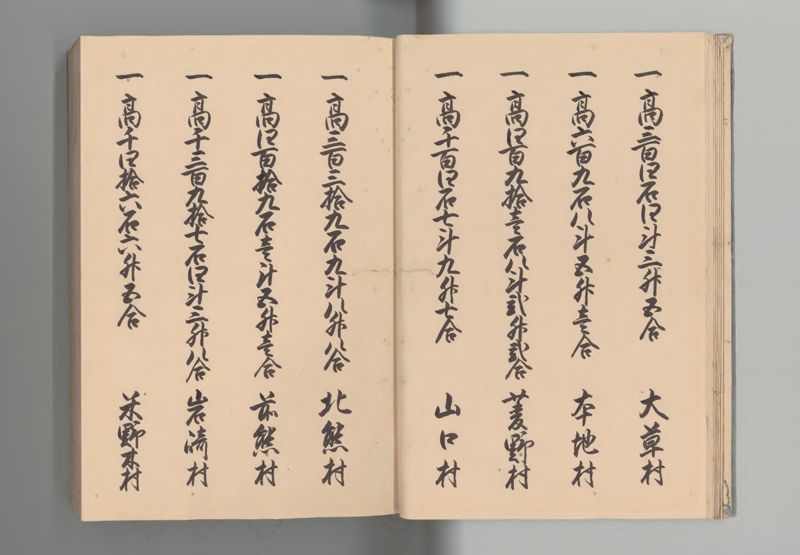 一高三百四石四斗三升五合 大草村
一高六百九石八斗五升壱合 本地村
一高四百九拾壱石八斗弐升弐合 菱野村
一高千百四石七斗九升七合 山口村
一高三百三拾九石九斗八升八合 北熊村
一高四百拾九石壱斗五升壱合 前熊村
一高千三百九拾七石四斗三升八合 岩崎村
一高千四拾六石六升五合 米野木村